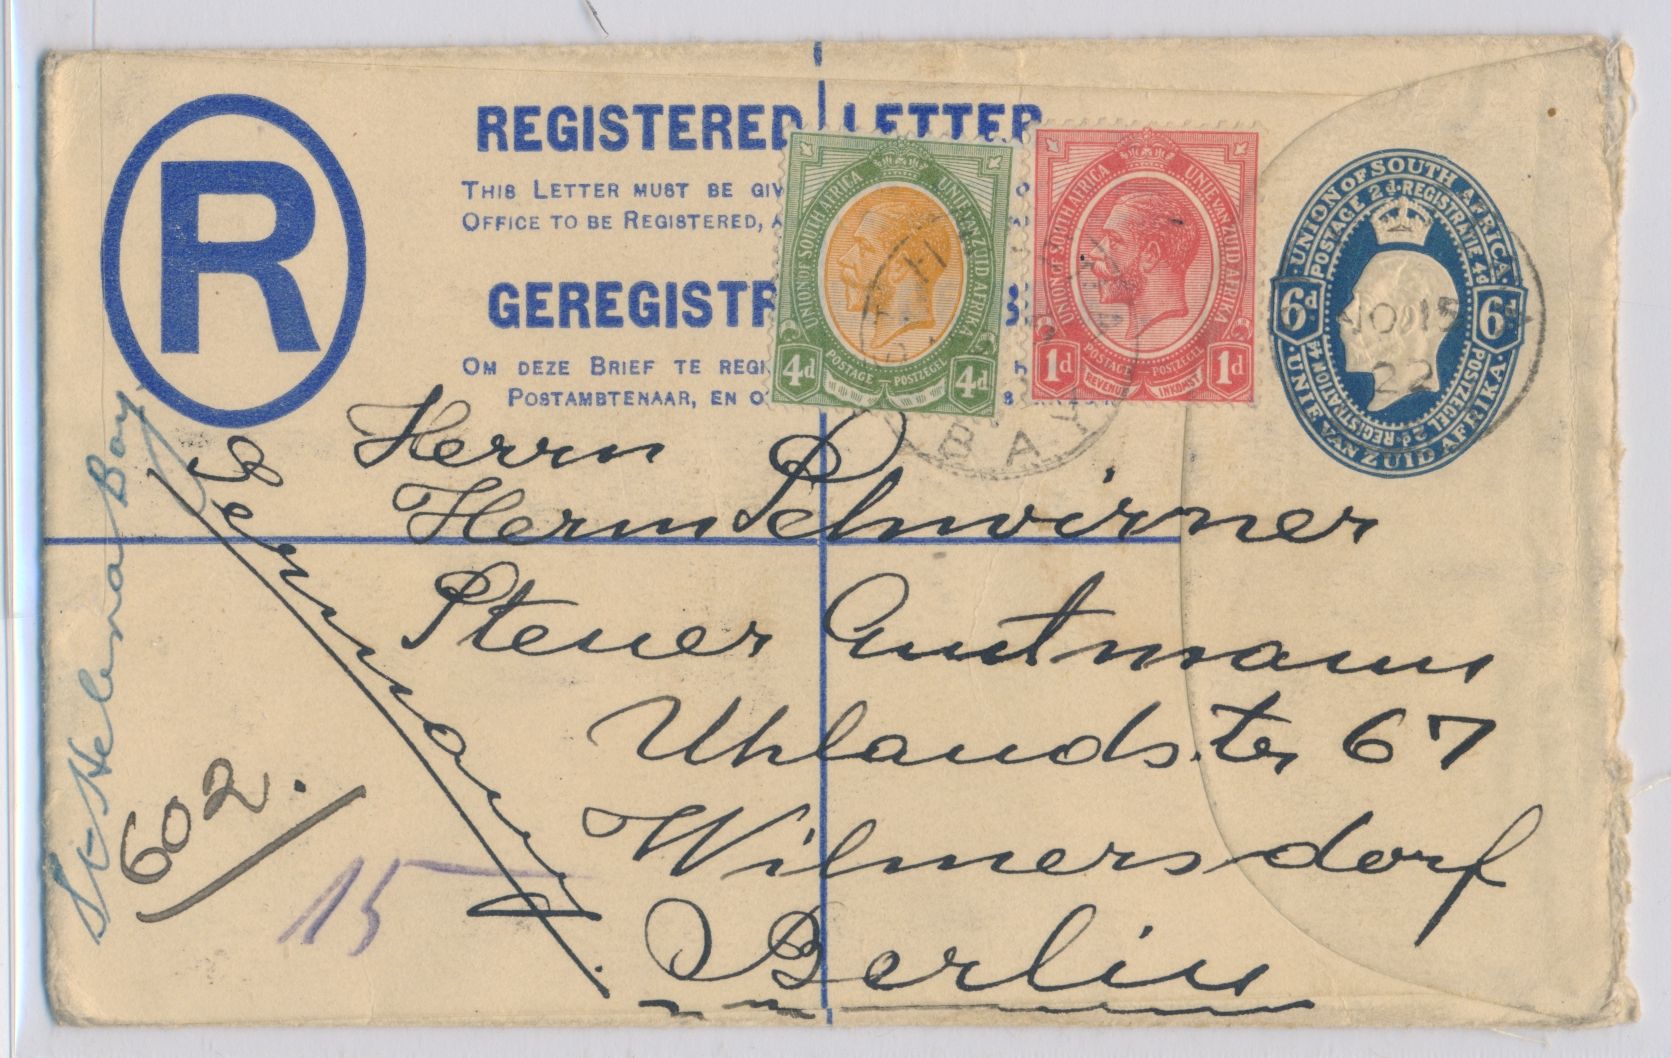 REGISTERED LETTER
THIS LETTER MUST BE
OFFICE TO BE REGISTERED,
R
OM DEZE BRIEF TE
POSTAMBTENAAR, EN
UNION OF SOUTH AFRICA UNIE VAN ZUID AFRIKA
4d POSTAGE POSTZEGEL 4d
UNION OF SOUTH AFRICA UNIE VAN ZUID AFRIKA
1d POSTAGE POSTZEGEL 1d
REVENUE INKOMST
UNION OF SOUTH AFRICA
POSTAGE 2d. REGISTRATIE 4d
6d 6d
REGISTRATION 4d POSTZEGEL 2d
UNIE VAN ZUID AFRIKA
NO 15
22
BAY
Herrn
Herm Schwirner
Steuer Gutmann
Uhlandstr 67
Wilmersdorf
Berlin
Germany
St Helena Bay
602.
15